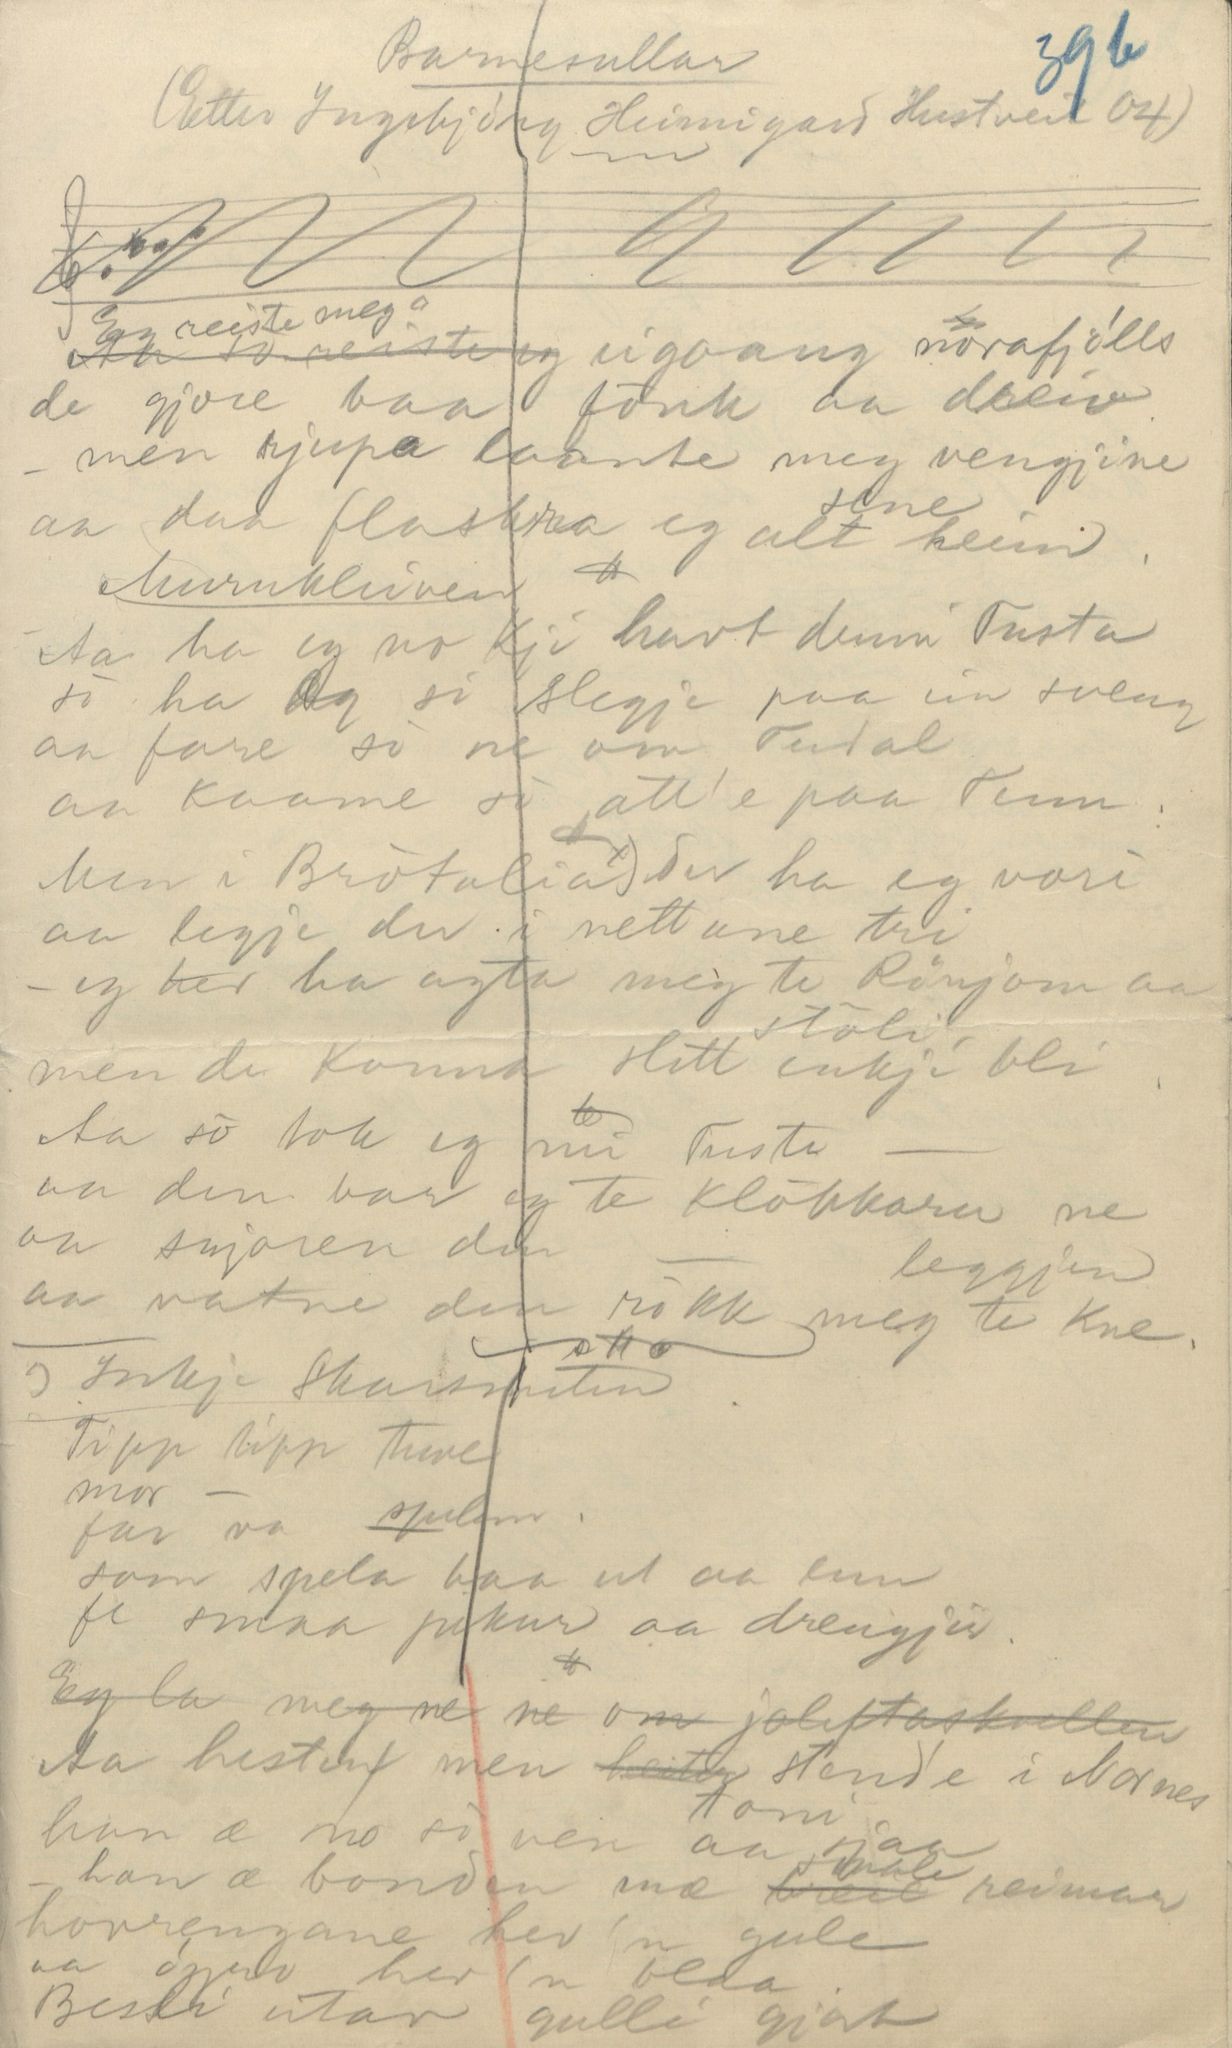 Barnesullar
396
(Etter Ingebjörg Heimigard Hustveit 04)
Eg reiste meg
Aa so reiste eg eigoang norafjölls
de gjore baa fönk aa dreiv
- men rjupa laante meg vengjine
sine
aa daa flaskra eg alt heim.
Murukleiven
Aa ha eg no kji havt denni Fusta
so ha eg si slegje paa ein sveng
aa fare so ne om Tudal
aa kaame so att'e paa Tinn.
Men i Brötalia x) der ha eg vori
aa legje der i nettane tri
- eg her ha agta meg te Rönjom aa
stöli
men de konna slett inkji bli.
Aa so tok eg mi Fuste —
aa den bar eg te Klökkaren ne
aa snjoren den — leggjen
aa vatne den rökk meg te kne.
x) Inkje Skarsmuten
Tipp tipp tuve
mor —
far va spelem.
som spela baa ut aa inn
fe smaa pikur aa drengjir.
Eg la meg ne ne om joleftaskvellen
Aa hesten men heiter stend'e i Nornes
toni
han æ no so ven aa sjaa
smale
- han æ bonden mæ breie reimar
hovrengane hev'n gule
aa öyro hev'n blaa.
Besli utav gulli gjort